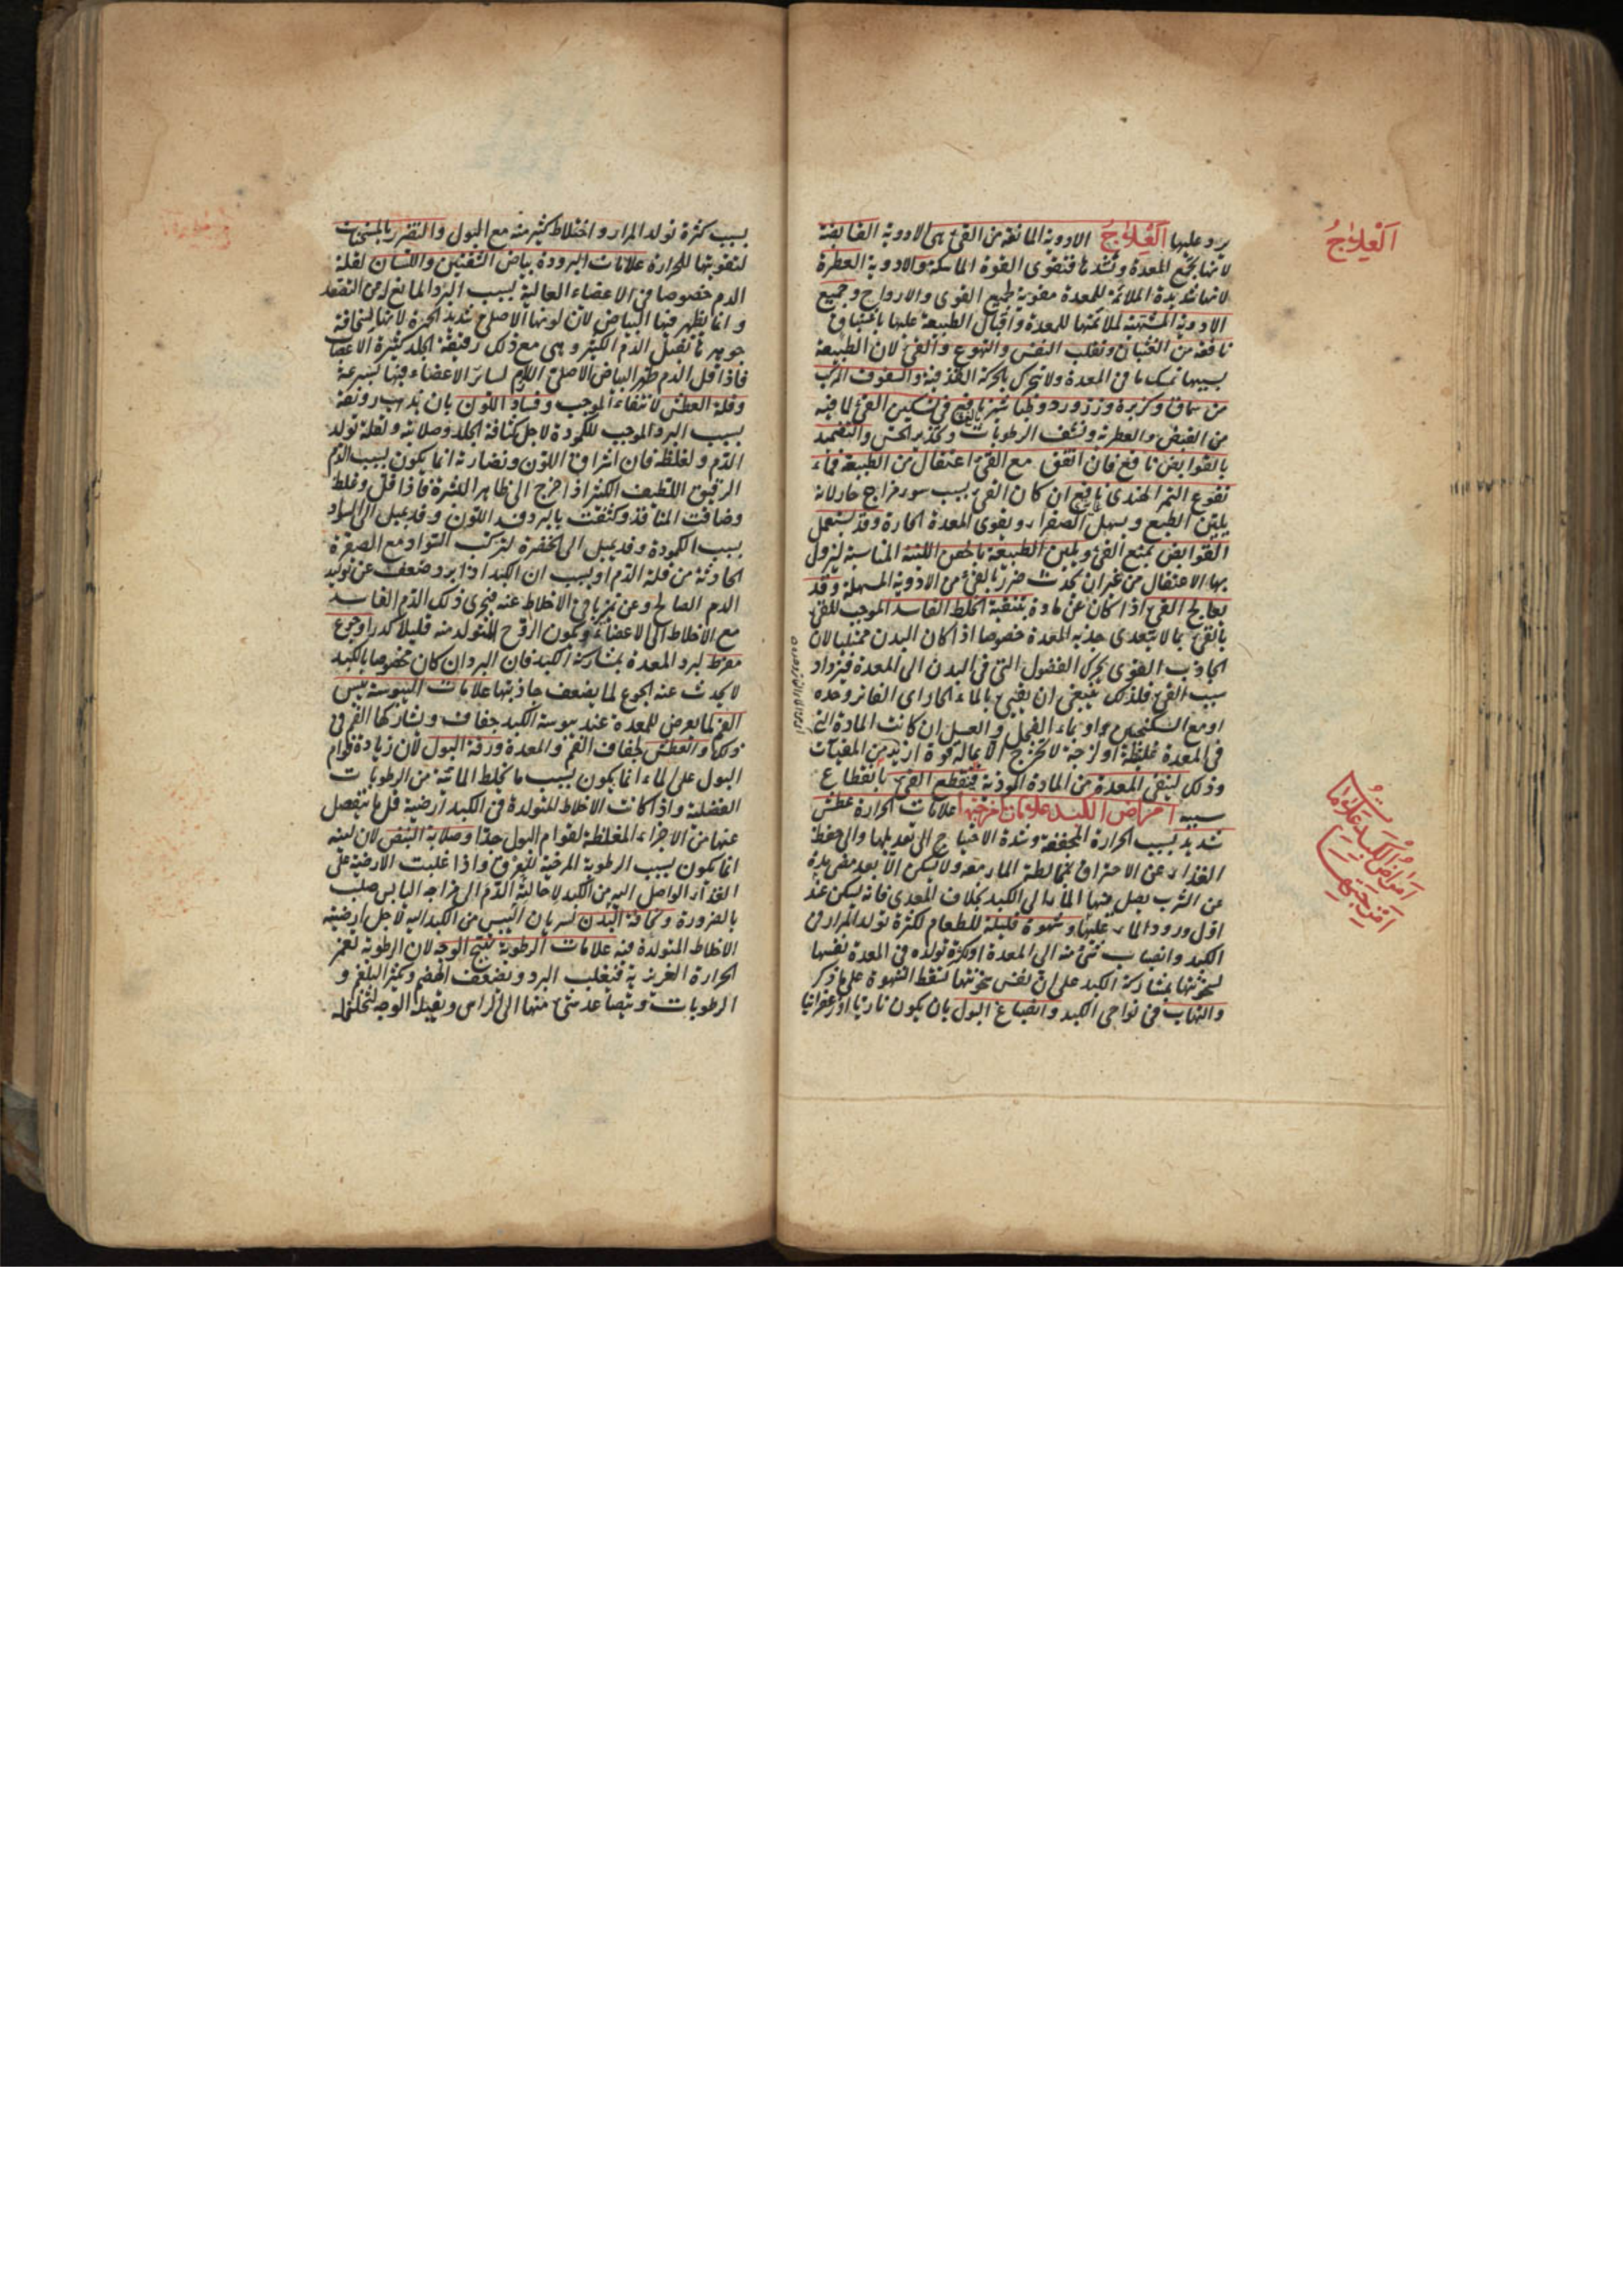 يرد عليها العلاج الادوية المانعة من القئ هى الادوية القابضة
لانها تجمع المعدة وتشدها فتقوى القوة الماسكة والادوية العطرة
لانها شديدة الملائمة للمعدة مقوية لجميع القوى والارواح وجميع
الادوية المشتهية لملائمتها للمعدة واقبال الطبيعة عليها باشتياق
نافعة من الغثيان وتقلب النفس والتهوع والقئ لان الطبيعة
بسببها تمسك ما فى المعدة ولا تتحرك بالحركة القذفية والسفوف المركب
من سماق وكزبرة وزرورد وطباشير نافع فى تسكين القئ لما فيه
من القبض والعطرية ونشف الرطوبات وتخدير الحس والتضميد
بالقوابض نافع فان اتفق مع القئ اعتقال من الطبيعة فماء
نقوع التمر الهندى نافع ان كان القئ بسبب سوء مزاج حار لانه
يلين الطبع ويسهل الصفراء ويقوى المعدة الحارة وقد يستعمل
القوابض لمنع القئ ويلين الطبيعة بالحقن اللينة المناسبة ليزول
بها الاعتقال من غير ان يحدث ضرر بالقئ من الادوية المسهلة وقد
يعالج القئ اذا كان عن مادة بتنقية الخلط الفاسد الموجب للقئ
بالقئ بما لا يتعدى جذبه المعدة خصوصا اذا كان البدن ممتليا لان
الجاذب القوى يحرك الفضول التى فى البدن الى المعدة فيزداد
سبب القئ فلذلك ينبغى ان يقيئ بالماء الحار اى الفاتر وحده
او مع السكنجبين او بماء الفجل والعسل ان كانت المادة التى
فى المعدة غليظة او لزجة لا تخرج الا بماله قوة ازيد من المقيئات
وذلك لينقى المعدة من المادة الموذية فينقطع القئ بانقطاع
سببه امراض الكبد علامات امزجتها علامات الحرارة عطش
شديد بسبب الحرارة المجففة وشدة الاحتياج الى تعديلها والى حفظ
الغذاء عن الاحتراق بمخالطة الماء معه ولا يسكن الا بعد مضى مدة
عن الشرب يصل فيها الماء الى الكبد بخلاف المعدى فانه يسكن عند
اول ورود الماء عليها وشهوة قليلة للطعام لكثرة تولد المرار فى
الكبد وانصباب شئ منه الى المعدة او لكثرة تولده فى المعدة نفسها
لسخونتها بمشاركة الكبد على ان نفس سخونتها تسقط الشهوة على ما ذكر
والتهاب فى نواحى الكبد وانصباغ البول بان يكون ناريا او زعفرانيا
العلاج
امراض الكبد علامات
امزجتها
بسبب كثرة تولد المرار واختلاط كثير منه مع البول والتضرر بالمسخنات
لتقويتها للحرارة علامات البرودة بياض الشفتين واللسان لقلة
الدم خصوصا فى الاعضاء العالية بسبب البرد المانع له من التصعد
وانما يظهر فيها البياض لان لونها الاصلى شديد الحمرة لانها لسخافة
جوهرها تقبل الدم الكثير وهى مع ذلك رقيقة الجلد كثيرة الاعصاب
فاذا قل الدم ظهر البياض الاصلى اللازم لسائر الاعضاء فيها بسرعة
وقلة العطش لانتفاء الموجب وفساد اللون بان يذهب رونقه
بسبب البرد الموجب للكمودة لاجل كثافة الجلد وصلابته ولقلة تولد
الدم ولغلظه فان اشراق اللون ونضارته انما يكون بسبب الدم
الرقيق اللطيف الكثير اذا خرج الى ظاهر البشرة فاذا قل وغلظ
وضاقت المنافذ وكثفت بالبرد فسد اللون وقد يميل الى السواد
بسبب الكمودة وقد يميل الى الخضرة لتركب السواد مع الصفرة
الحادثة من قلة الدم او بسبب ان الكبد اذا برد وضعف عن توليد
الدم الصالح وعن تميز باقى الاخلاط عنه فيجرى ذلك الدم الفاسد
مع الاخلاط الى الاعضاء ويكون الروح المتولد منه قليلا كدرا وجوع
مفرط لبرد المعدة بمشاركة الكبد فان البرد ان كان مخصوصا بالكبد
لا يحدث عنه الجوع لما يضعف جاذبتها علامات اليبوسة يبس
الفم لما يعرض للمعدة عند يبوسة الكبد جفاف ويشاركها الفم فى
ذلك والعطش لجفاف الفم والمعدة ورقة البول لان زيادة قوام
البول على الماء انما يكون بسبب ما يخلط المائية من الرطوبات
الفضلية واذا كانت الاخلاط المتولدة فى الكبد ارضية قل ما ينفصل
عنها من الاجزاء المغلظة لقوام البول جدا وصلابة النبض لان لينه
انما يكون بسبب الرطوبة المرخية للعرق واذا غلبت الارضية على
الغذاء الواصل اليه من الكبد لاحالته الدم الى مزاجه اليابس صلب
بالضرورة ونحافة البدن لسريان اليبس من الكبد اليه لاجل ارضية
الاخلاط المتولدة فيه علامات الرطوبة تهيج الوجه لان الرطوبة تغمر
الحرارة الغريزية فيغلب البرد ويضعف الهضم ويكثر البلغم و
الرطوبات ويتصاعد شئ منها الى الراس ويقبله الوجه لتخلخله